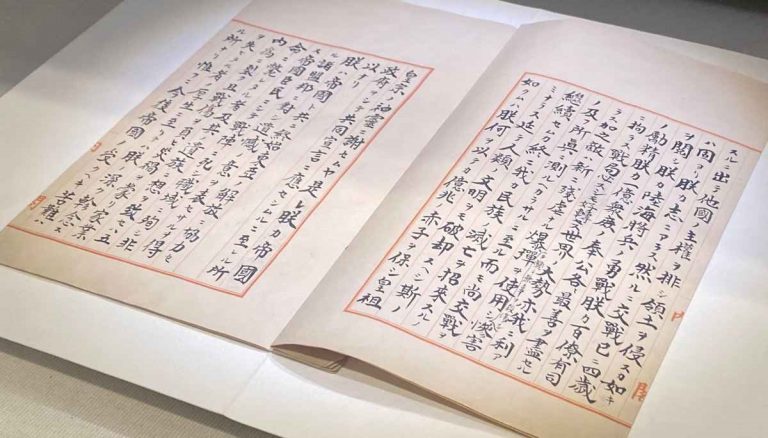 スルニ出テ他國ノ主權ヲ排シ領土ヲ侵スカ如キ
ハ固ヨリ朕カ志ニアラス然ルニ交戰已ニ四歳
ヲ閲シ朕カ陸海將兵ノ勇戰朕カ百僚有司
ノ勵精朕カ一億衆庶ノ奉公各最善ヲ盡セル
ニ拘ラス戰局必スシモ好轉セス世界ノ大勢亦我ニ利ア
ラス加之敵ハ新ニ殘虐ナル爆彈ヲ使用シ惨害
ノ及フ所眞ニ測ルヘカラサルニ至ル而モ尚交戰ヲ
繼續セムカ終ニ我カ民族ノ滅亡ヲ招來スルノ
ミナラス延テ人類ノ文明ヲモ破却スヘシ斯ノ
如クムハ朕何ヲ以テカ億兆ノ赤子ヲ保シ皇祖
皇宗ノ神靈ニ謝セムヤ是レ朕カ帝國
政府ヲシテ共同宣言ニ應セシムルニ至レル所
以ナリ
朕ハ帝國ト共ニ終始東亞ノ解放ニ協力セル
諸盟邦ニ對シ遺憾ノ意ヲ表セサルヲ得
ス帝國臣民ニシテ戰陣ニ死シ職域ニ殉シ非
命ニ斃レタル者及其ノ遺族ニ想ヲ致セハ五
内爲ニ裂ク且戰傷ヲ負ヒ災禍ヲ蒙リ家業
ヲ失ヒタル者ノ厚生ニ至リテハ朕ノ深ク軫念ス
ル所ナリ惟フニ今後帝國ノ受クヘキ苦難ハ
内
閣